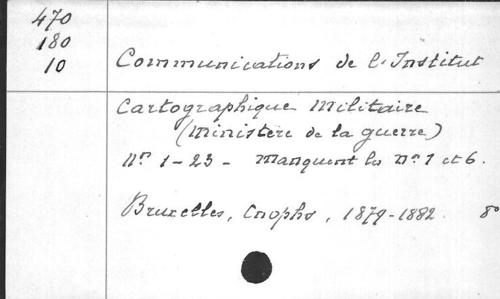 470
180
10
Communications de l'Institut
Cartographique Militaire
(Ministère de la guerre)
Nos 1-23 - Manquent les Nos 1 et 6.
Bruxelles, Cnophs, 1879-1882 8o